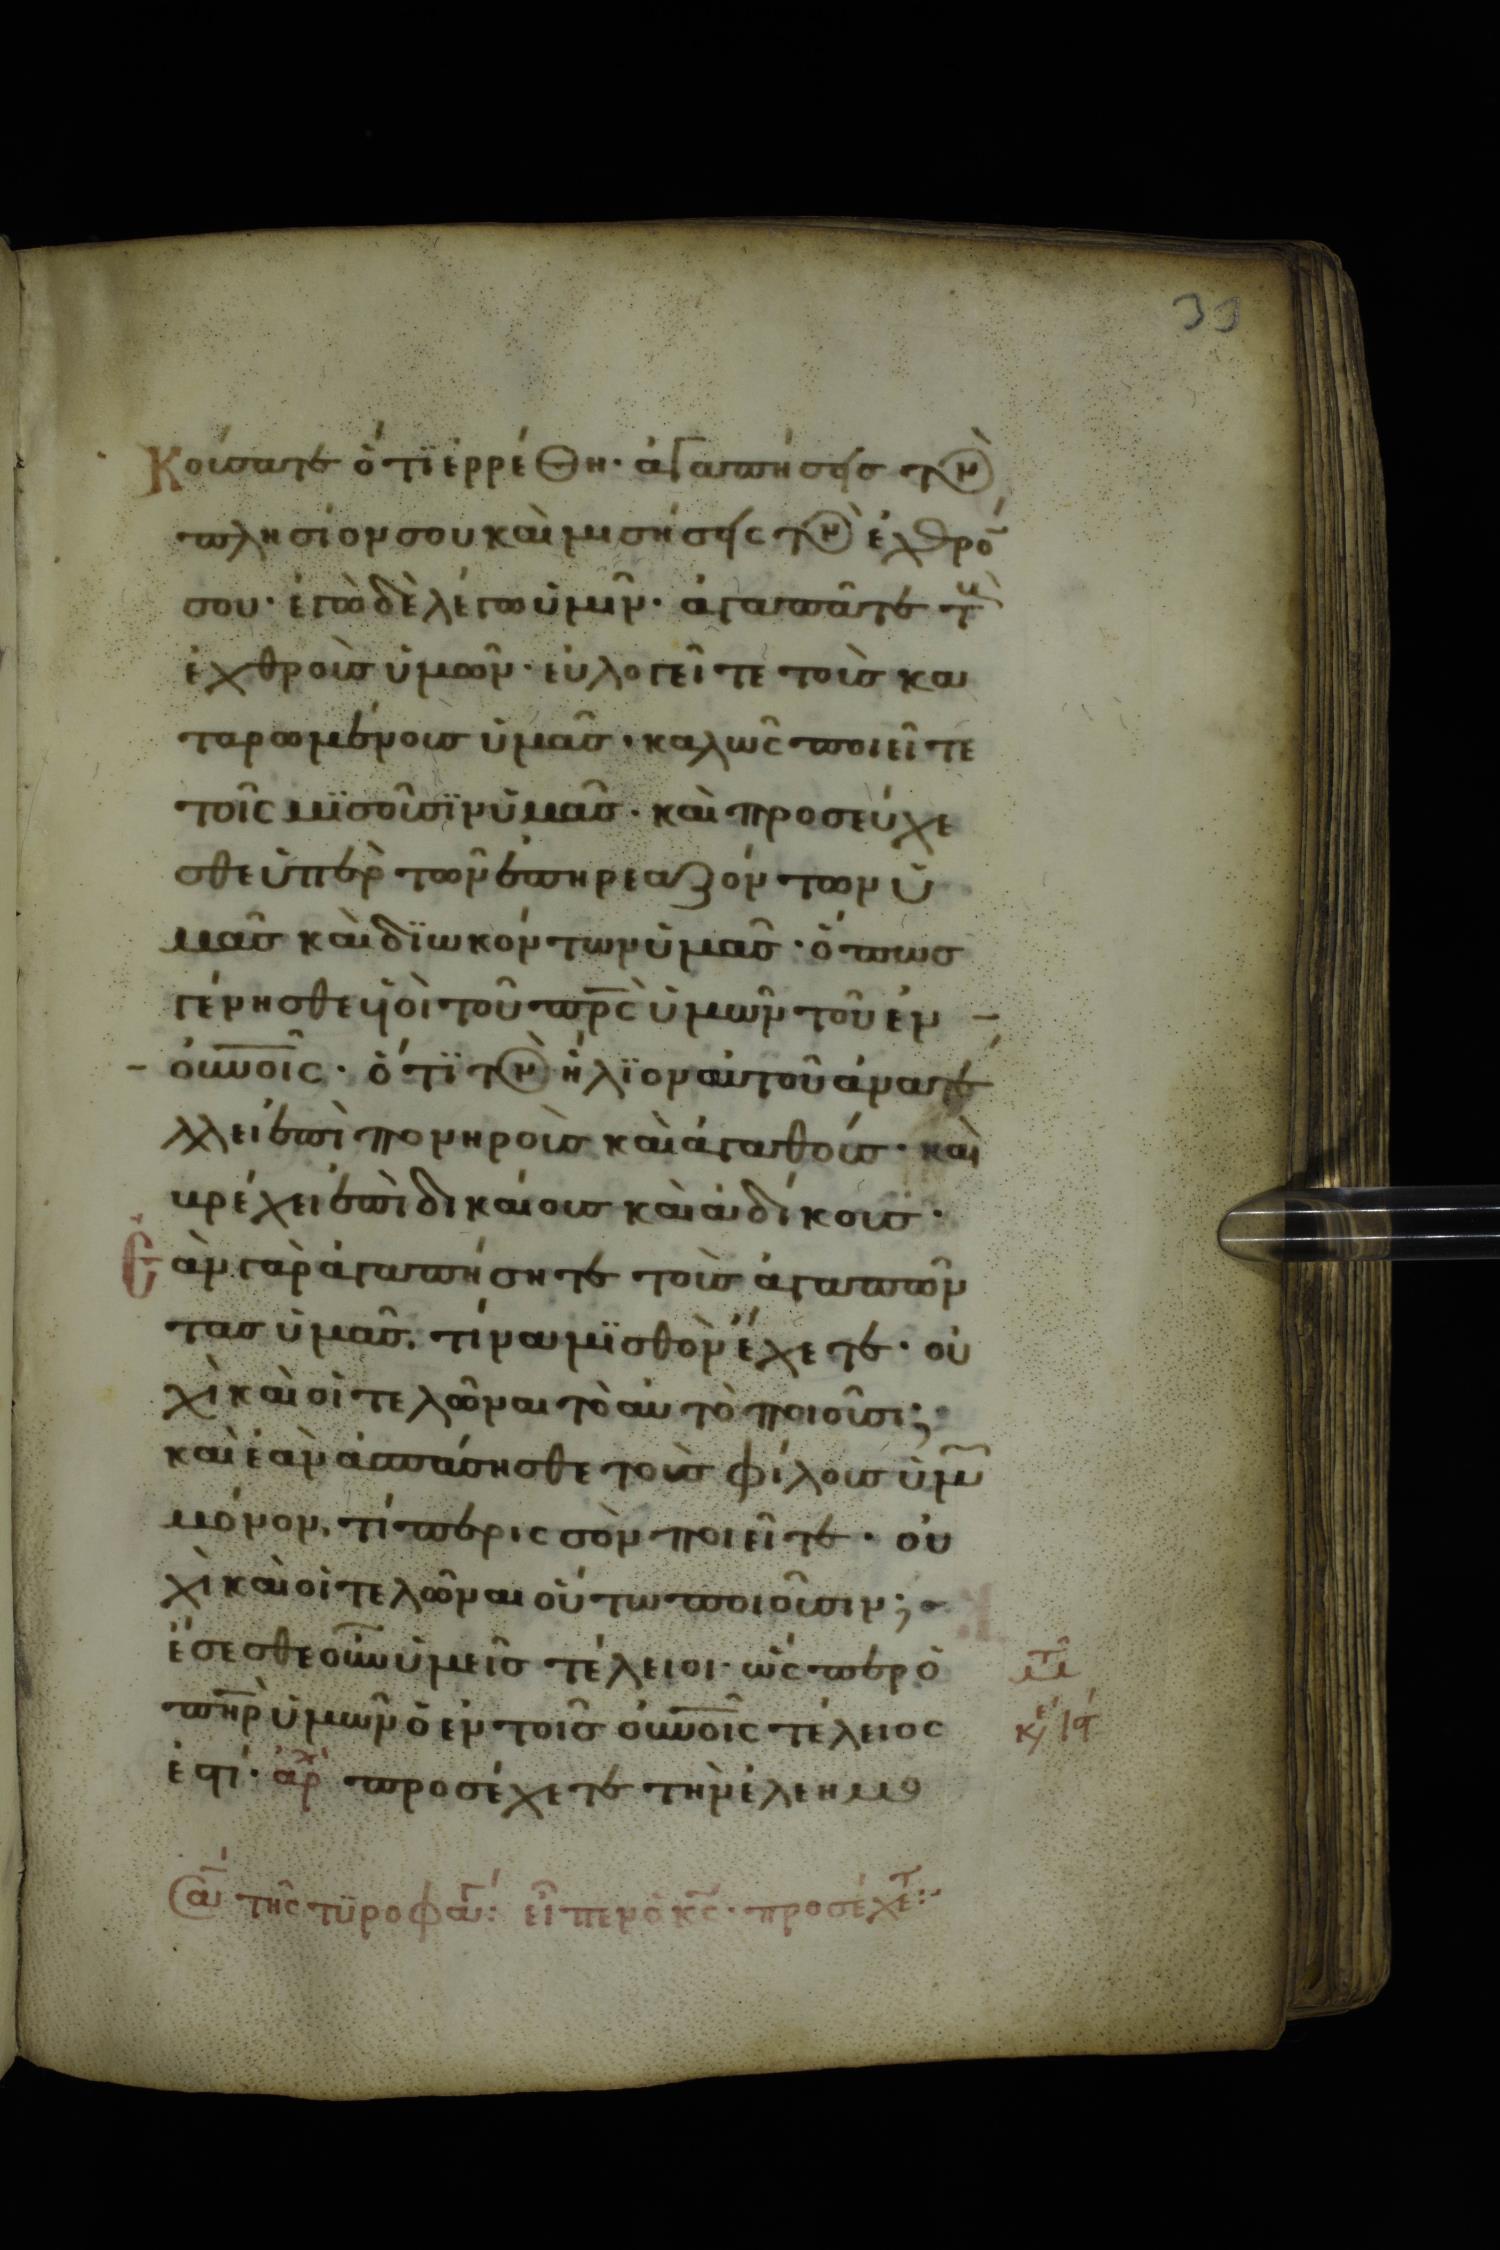 33
Κούσατε ὅτϊ ἐρρέθη· ἀγαπήσεις τὸν
πλησίον σου καὶ μισήσεις τὸν ἐχθρόν
σου· ἐγὼ δὲ λέγω ὑμῖν· ἀγαπᾶτε τοὺς
ἐχθροὺς ὑμῶν· εὐλογεῖτε τοὺς κα
ταρωμένους ὑμᾶς· καλῶς ποιεῖτε
τοῖς μϊσοῦσϊν ὑμᾶς· καὶ προσεύχε
σθε ὑπὲρ τῶν ἐπηρεαζόντων ὑ
μᾶς καὶ δϊωκόντων ὑμᾶς· ὅπως
γένησθε υἱοὶ τοῦ πρ̅ς ὑμῶν τοῦ ἐν
οὐνοῖς· ὅτϊ τὸν ἥλϊον αὐτοῦ ἀνατέ
λλει ἐπὶ πονηροὺς καὶ ἀγαθούς· καὶ
βρέχει ἐπὶ δικαίους καὶ ἀδίκους·
Ἐὰν γὰρ ἀγαπήσητε τοὺς ἀγαπῶν
τας ὑμᾶς, τίνα μϊσθὸν ἔχετε· οὐ
χὶ καὶ οἱ τελῶναι τὸ αὐτὸ ποιοῦσι;
καὶ ἐὰν ἀσπάσησθε τοὺς φίλους ὑμῶν
μόνον, τί περισσὸν ποιεῖτε· οὐ
χὶ καὶ οἱ τελῶναι οὕτω ποιοῦσιν;
ἔσεσθε οὖν ὑμεῖς τέλειοι· ὥσπερ ὁ
πη̅ρ ὑμῶν ὁ ἐν τοῖς οὐνοῖς τέλειος
ἐστί· ἀρχ προσέχετε τὴν ἐλεημο
τῆς τϋροφάγ: εἶπεν ὁ κς· προσέχετ: